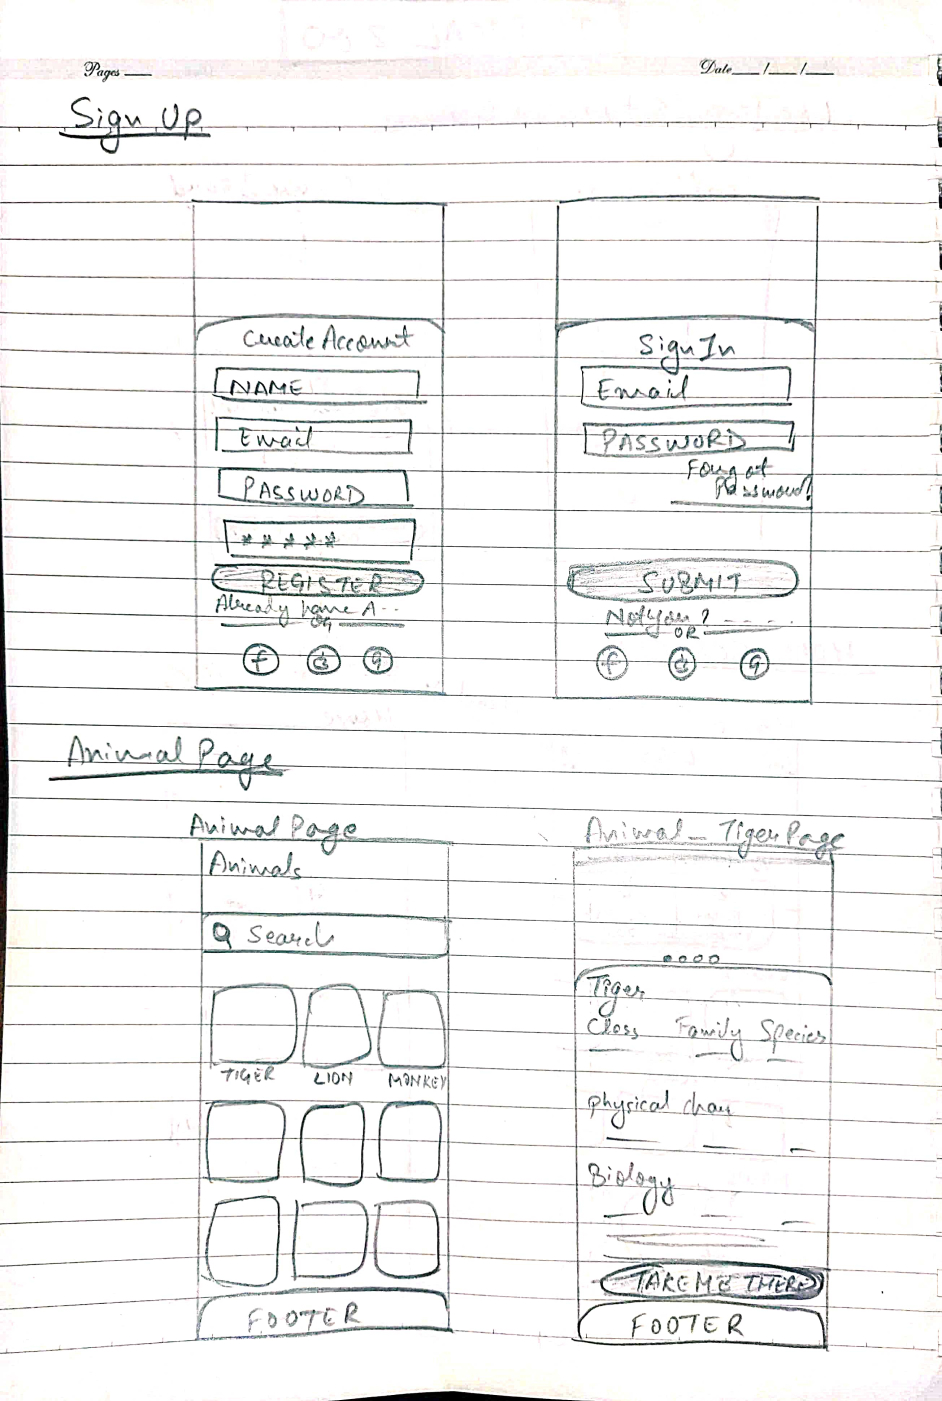 Pages
Date / /
Sign Up
Create Account
NAME
Email
PASSWORD
*****
REGISTER
Already have A...
OR
f
G
Sign In
Email
PASSWORD
Forgot
Password?
SUBMIT
Not you? ----
OR
f
G
Animal Page
Animal Page
Animals
Search
TIGER LION MONKEY
FOOTER
Animal - Tiger Page
Tiger
Class Family Species
physical char
Biology
TAKE ME THERE
FOOTER